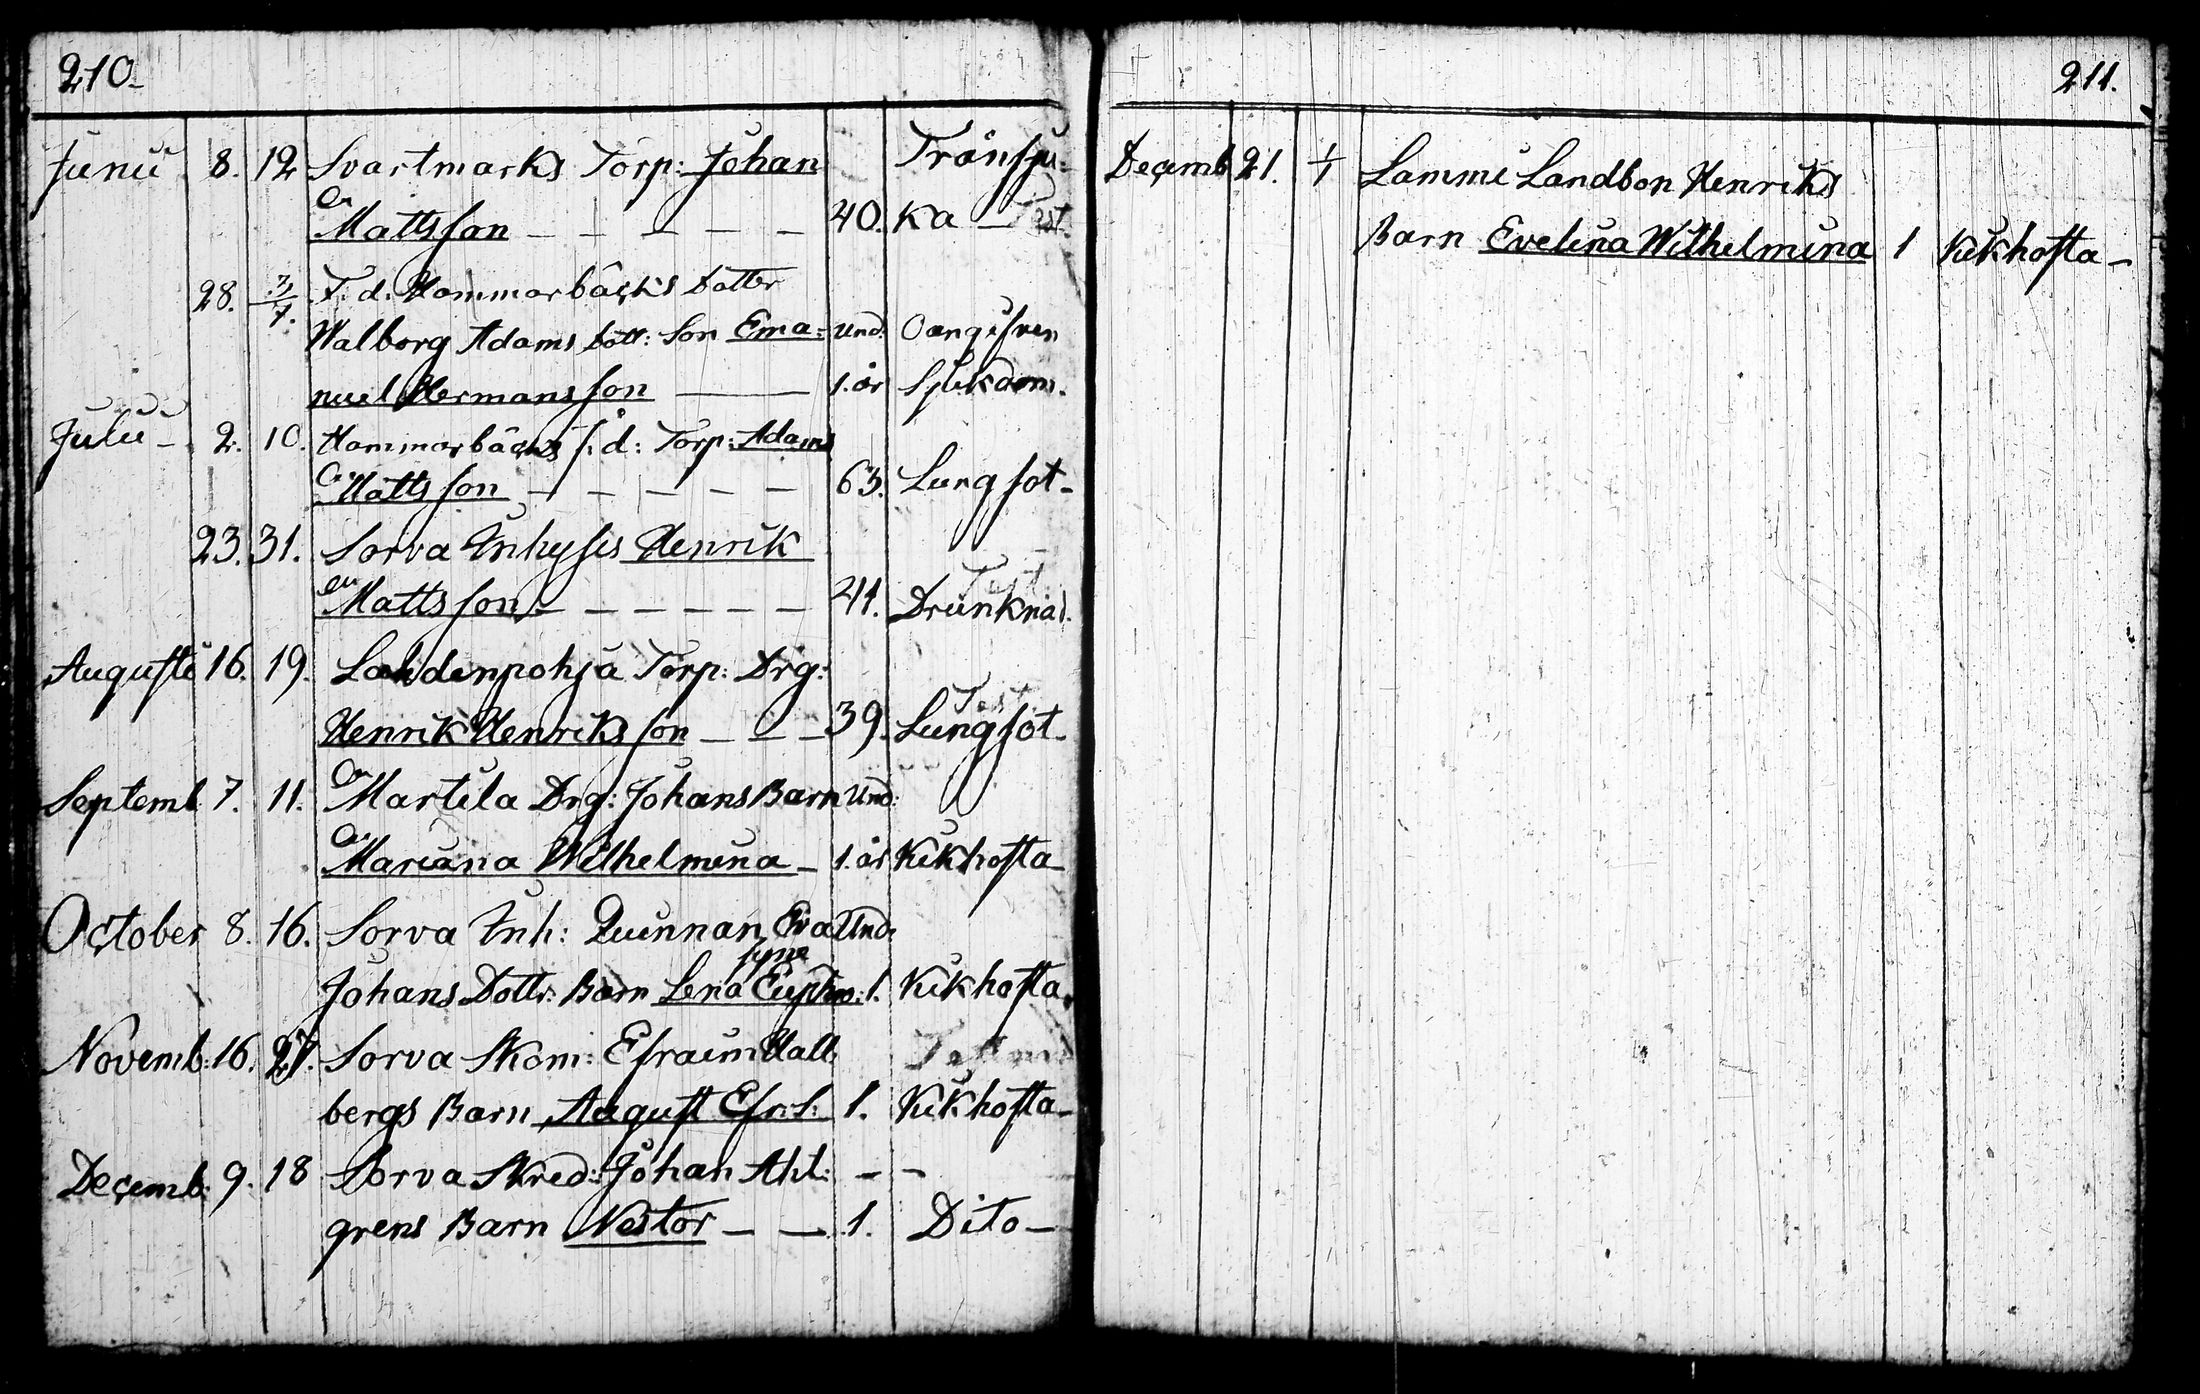 210.
Junii 8. 12 Svartmarks Torp: Johan Trånsju-
Mattsson 40. ka Test.
28. 3/7. F. d. Hammarbäcks dotter
Walborg Adams dott: Son Ema- und. Oangifven
nuel Hermansson 1. år Sjukdom.
Julii 2. 10. Hammarbäcks f. d: Torp: Adam
Mattsson 63. Lungsot
23. 31. Sorva Inhyses Henrik
Mattsson 41. Drunknad.
Augusti 16. 19. Lahdenpohja Torp: Drg: Test
Henrik Henriksson 39. Lungsot
Septemb. 7. 11. Martila Drg: Johans Barn Und:
Mariana Wilhelmina 1. år Kikhosta
October 8. 16. Sorva Inh: Quinnan Eva Und:
syne
Johans Dottr: Barn Lena Euphro: 1. Kikhosta
Novemb: 16. 27. Sorva Skom: Efraim Hall
bergs Barn August Efr: 1. Kikhosta
Decemb: 9. 18 Sorva Skred: Johan Ahl:
grens Barn Nestor 1. Dito
211.
Decemb 21. 1/1 Lammi Landbon Henriks
Barn Evelina Wilhelmina 1 Kikhosta